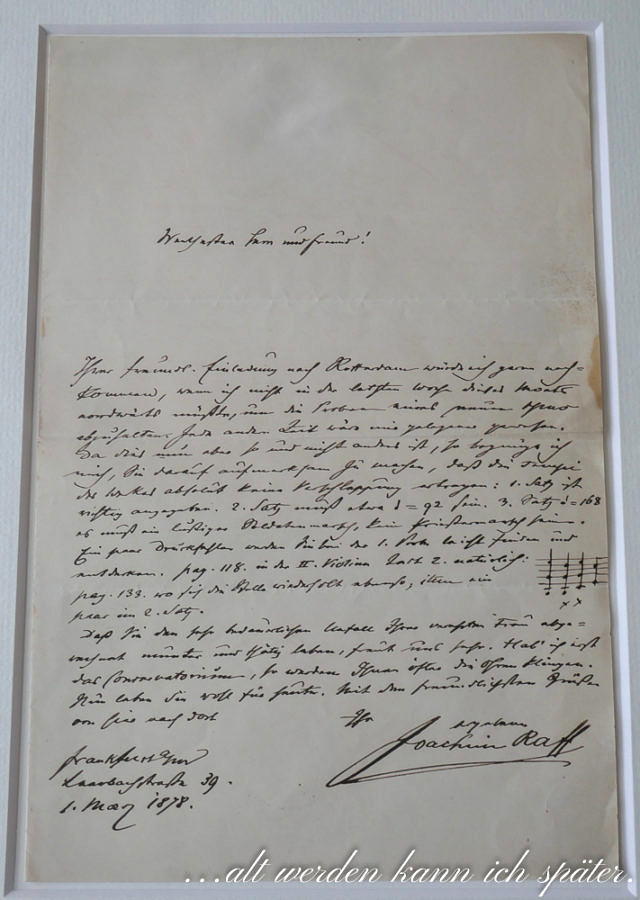 Werthester Herr und Freund!
Ihrer freundl. Einladung nach Rotterdam würde ich gern nach=
kommen, wenn ich nicht in der letzten Woche dieses Monats
nordwärts müßte, um die Proben eines neuen
abzuhalten. Jede andere Zeit wäre mir gelegener gewesen.
Da dies nun aber so und nicht anders ist, so begnüge ich
mich, Sie darauf aufmerksam zu machen, daß die Tempi
des Werkes absolut keine Verschleppung ertragen: 1. Satz ist
richtig angegeben. 2. Satz muß etwa = 92 sein. 3. Satz = 168
es muß ein lustiger Soldatenmarsch, kein Priestermarsch sein.
Ein paar Druckfehler werden Sie bei der 1. Probe leicht finden und
entdecken. pag. 118. in der II. Violine Tact 2. natürlich:
pag. 133. wo sich die Stelle wiederholt ebenso; item ein
paar im 2. Satz.
Daß Sie den sehr bedauerlichen Unfall Ihrer verehrten Frau abge=
rechnet munter und thätig leben, freut uns sehr. Hab' ich erst
das Conservatorium, so werden Ihnen öfter die Ohren klingen.
Nun leben Sie wohl für heute. Mit den freundlichsten Grüßen
von hier nach dort
Ihr ergebener
Joachim Raff
Frankfurt a/M
39.
1. März 1878.
...alt werden kann ich später.